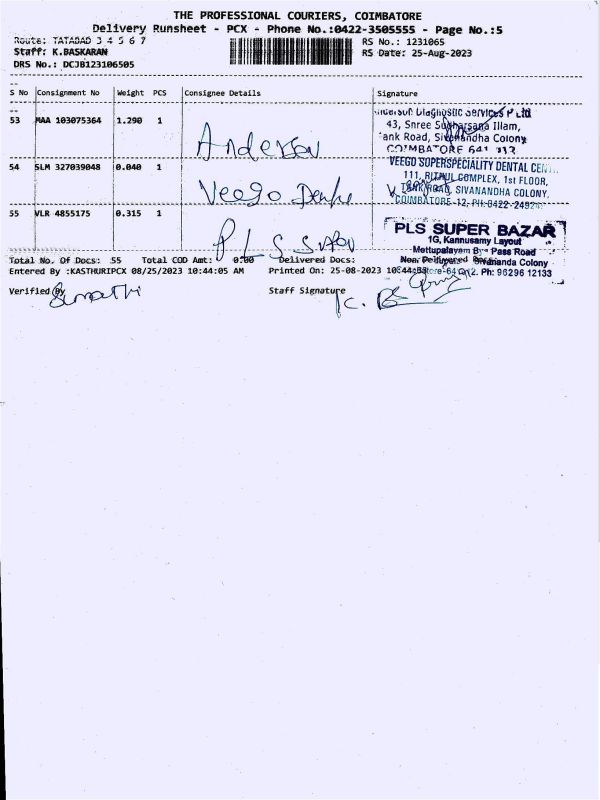 THE PROFESSIONAL COURIERS, COIMBATORE
Delivery Runsheet - PCX - Phone No.:0422-3505555 - Page No.:5
Route: TATABAD 3 4 5 6 7
RS No.: 1231065
Staff: K.BASKARAN
RS Date: 25-Aug-2023
DRS No.: DCJB123106505
S No Consignment No Weight PCS Consignee Details Signature
53 MAA 103075364 1.290 1
Anderson
Diagnostic Services P Ltd
43, Sree Illam,
Tank Road, Sivanandha Colony
COIMBATORE 641 012
54 SLM 327039048 0.040 1
Veego Dente
VEEGO SUPERSPECIALITY DENTAL
111, COMPLEX, 1st FLOOR,
TANK ROAD, SIVANANDHA COLONY,
COIMBATORE-12, PH:0422-2492
55 VLR 4855175 0.315 1
P L S Super
PLS SUPER BAZAR
1G, Kannusamy Layout
Mettupalayam Bye Pass Road
Sivananda Colony
Ph: 96296 12133
Total No. Of Docs: 55 Total COD Amt: 0.00 Delivered Docs:
Non Delivered Docs:
Entered By :KASTHURIPCX 08/25/2023 10:44:05 AM Printed On: 25-08-2023 10:44:08
Verified By
Staff Signature
K. B